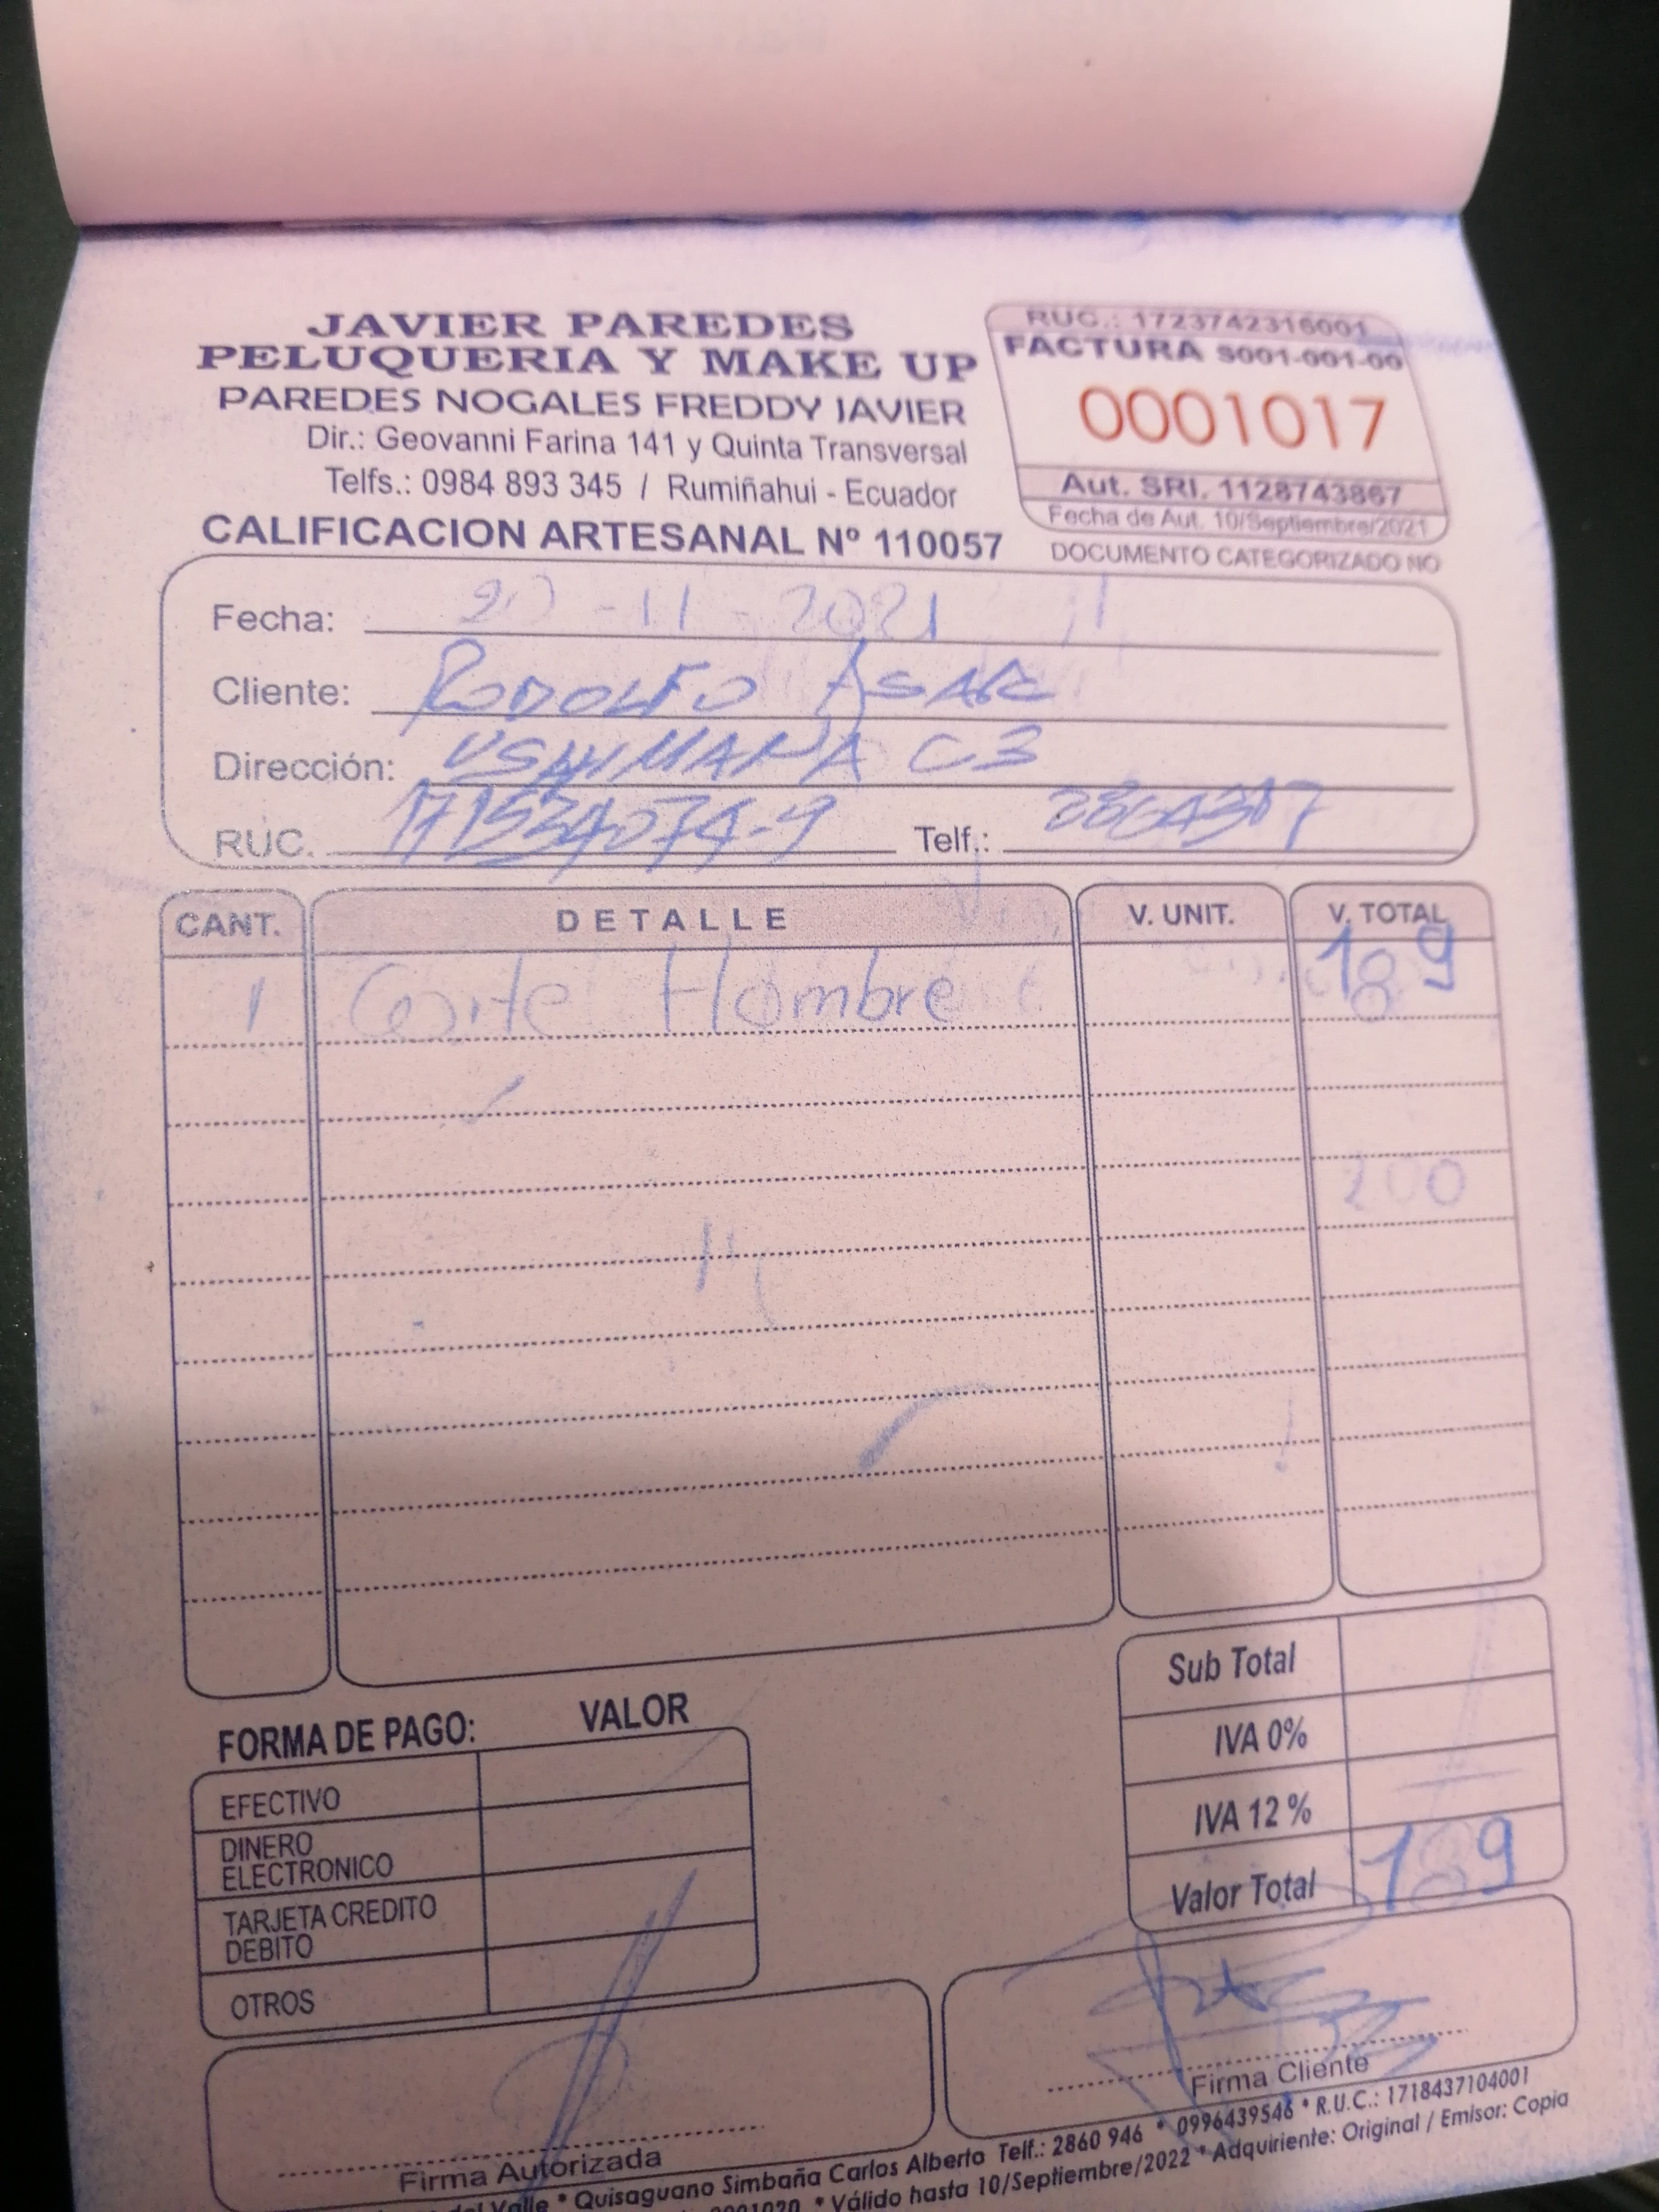 JAVIER PAREDES
PELUQUERIA Y MAKE UP
PAREDES NOGALES FREDDY JAVIER
Dir.: Geovanni Farina 141 y Quinta Transversal
Telfs.: 0984 893 345 / Rumiñahui - Ecuador
CALIFICACION ARTESANAL Nº 110057
RUC.: 1723742316001
FACTURA S001-001-00
0001017
Aut. SRI. 1128743867
Fecha de Aut. 10/Septiembre/2021
DOCUMENTO CATEGORIZADO NO
Fecha: -11-2021
Cliente: RODOLFO
Dirección: C3
RUC. Telf.:
CANT. DETALLE V. UNIT. V. TOTAL
1 Corte Hombre
Sub Total
IVA 0%
IVA 12%
Valor Total
FORMA DE PAGO: VALOR
EFECTIVO
DINERO ELECTRONICO
TARJETA CREDITO DEBITO
OTROS
Firma Autorizada
Firma Cliente
del Valle * Quisaguano Simbaña Carlos Alberto Telf.: 2860 946 * 0996439546 * R.U.C.: 1718437104001
* Válido hasta 10/Septiembre/2022 * Adquiriente: Original / Emisor: Copia